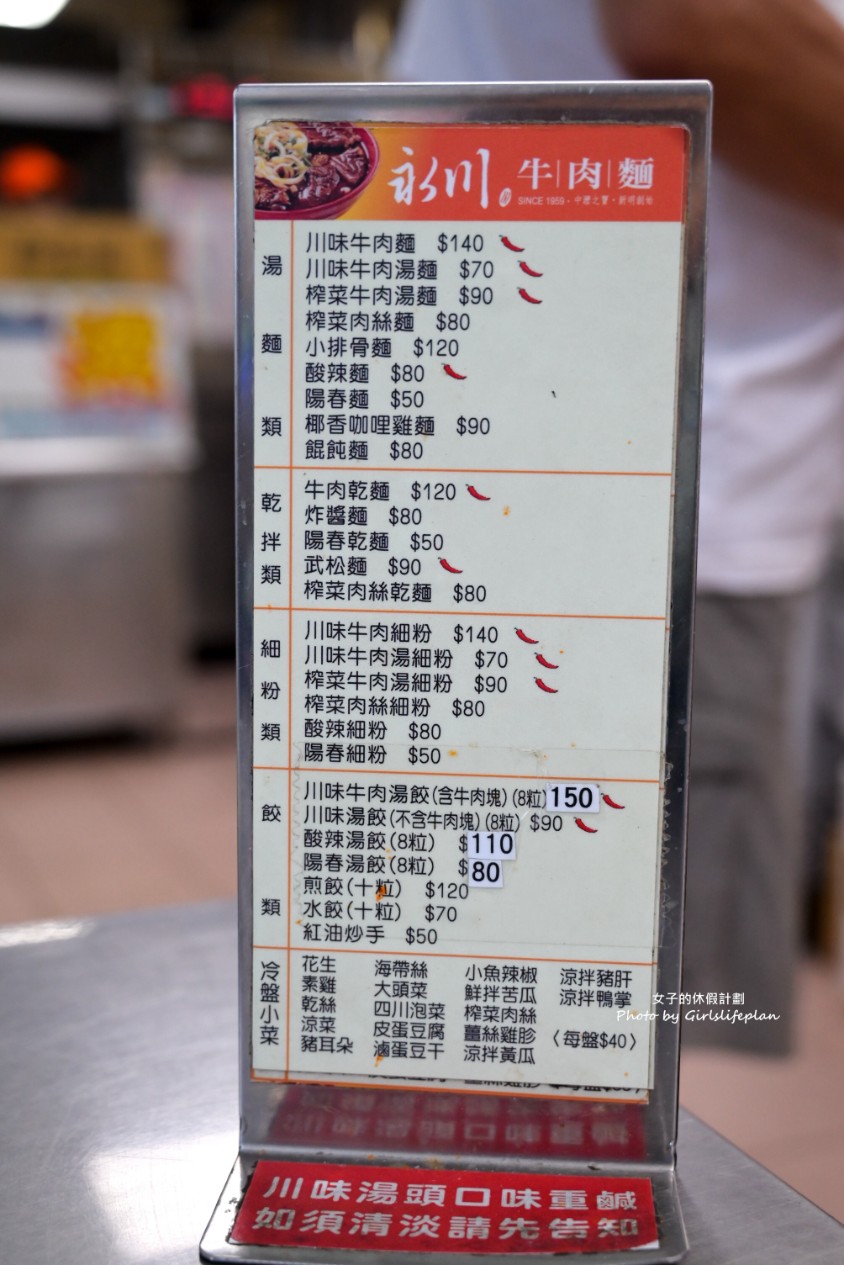 永川 牛肉麵
SINCE 1959．中壢之寶．新明創始
湯麵類
川味牛肉麵 $140
川味牛肉湯麵 $70
榨菜牛肉湯麵 $90
榨菜肉絲麵 $80
小排骨麵 $120
酸辣麵 $80
陽春麵 $50
椰香咖哩雞麵 $90
餛飩麵 $80
乾拌類
牛肉乾麵 $120
炸醬麵 $80
陽春乾麵 $50
武松麵 $90
榨菜肉絲乾麵 $80
細粉類
川味牛肉細粉 $140
川味牛肉湯細粉 $70
榨菜牛肉湯細粉 $90
榨菜肉絲細粉 $80
酸辣細粉 $80
陽春細粉 $50
餃類
川味牛肉湯餃(含牛肉塊)(8粒)150
川味湯餃(不含牛肉塊)(8粒) $90
酸辣湯餃(8粒) $110
陽春湯餃(8粒) $80
煎餃(十粒) $120
水餃(十粒) $70
紅油炒手 $50
冷盤小菜
花生 海帶絲 小魚辣椒 涼拌豬肝
素雞 大頭菜 鮮拌苦瓜 涼拌鴨掌
乾絲 四川泡菜 榨菜肉絲
涼菜 皮蛋豆腐 薑絲雞胗 〈每盤$40〉
豬耳朵 滷蛋豆干 涼拌黃瓜
女子的休假計劃
Photo by Girlslifeplan
川味湯頭口味重鹹
如須清淡請先告知